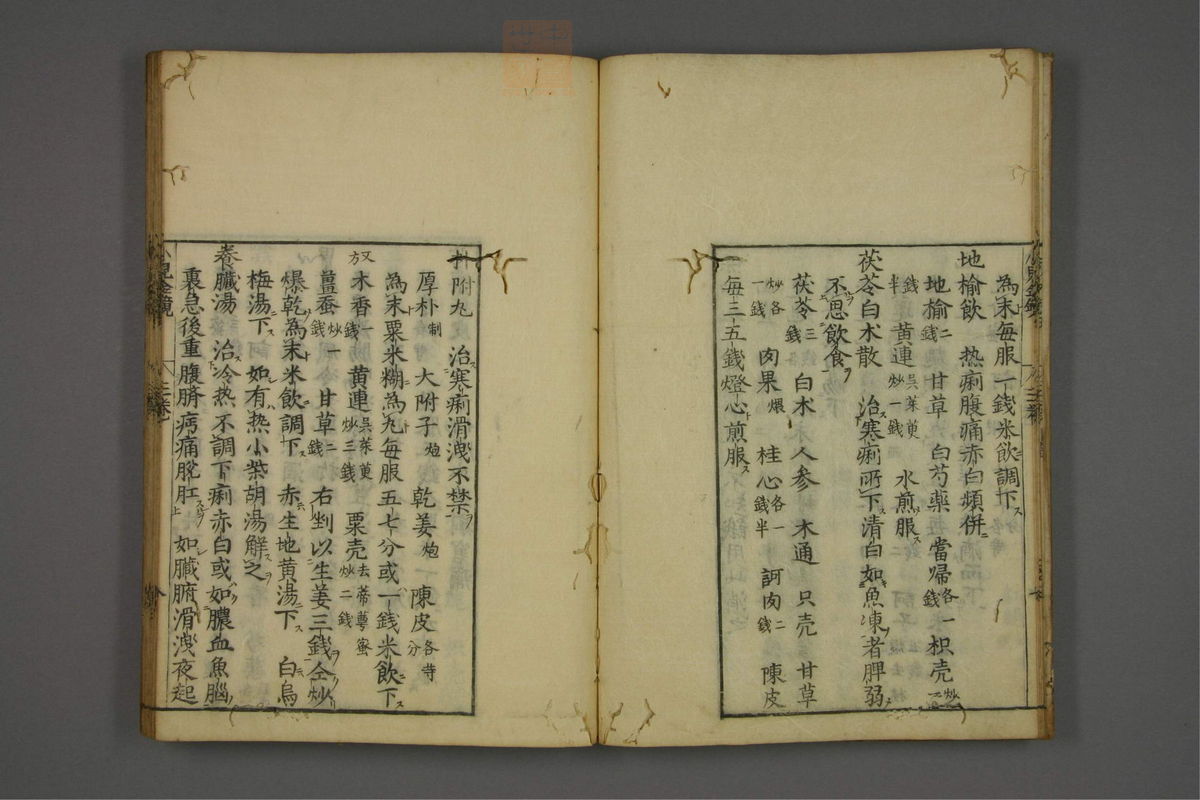 為末每服一錢米飲調下ス
地榆飲 热痢腹痛赤白頻併ニ
地榆二錢 甘草 白芍藥 當帰各一錢 枳壳炒
錢半 黄連吳茱萸炒一錢 水煎服ス
茯苓白朮散 治ス寒痢所下ス清白如魚凍者脾弱
不思飲食ヲ
茯苓三錢 白朮 人参 木通 只壳 甘草
炒各一錢 肉果煨 桂心各一錢半 訶肉二錢 陳皮
每三五錢燈心煎服ス
附丸 治ス寒痢滑洩不禁ヲ
厚朴制 大附子炮 乾姜炮 陳皮各等分
為末粟米糊為丸每服五七分或一錢米飲下ス
又放木香一錢 黄連吳茱萸炒三錢 粟壳去蒂蕚蜜炒二錢
薑蚕炒一錢 甘草二錢 右剉以生姜三錢仝炒
爆乾為末米飲調下ス 赤ニハ生地黄湯下ス 白ニハ烏
梅湯下ス 如有热小柴胡湯解之ヲ
養臓湯 治ス冷热不調下痢赤白或如膿血魚腦
裏急後重腹臍㽲痛脱肛上 如臓腑滑洩夜起
小兒全鏡